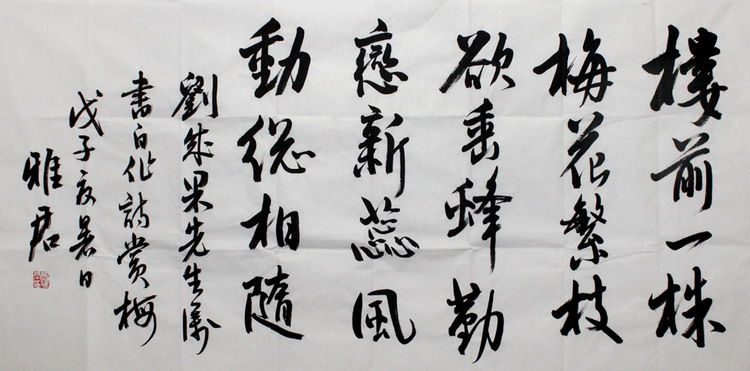 樓前一株
梅花繁枝
欲垂蜂勤
戀新蕊風
動總相隨
劉成果先生屬
書自作詩賞梅
戊子夏暑日
雅君